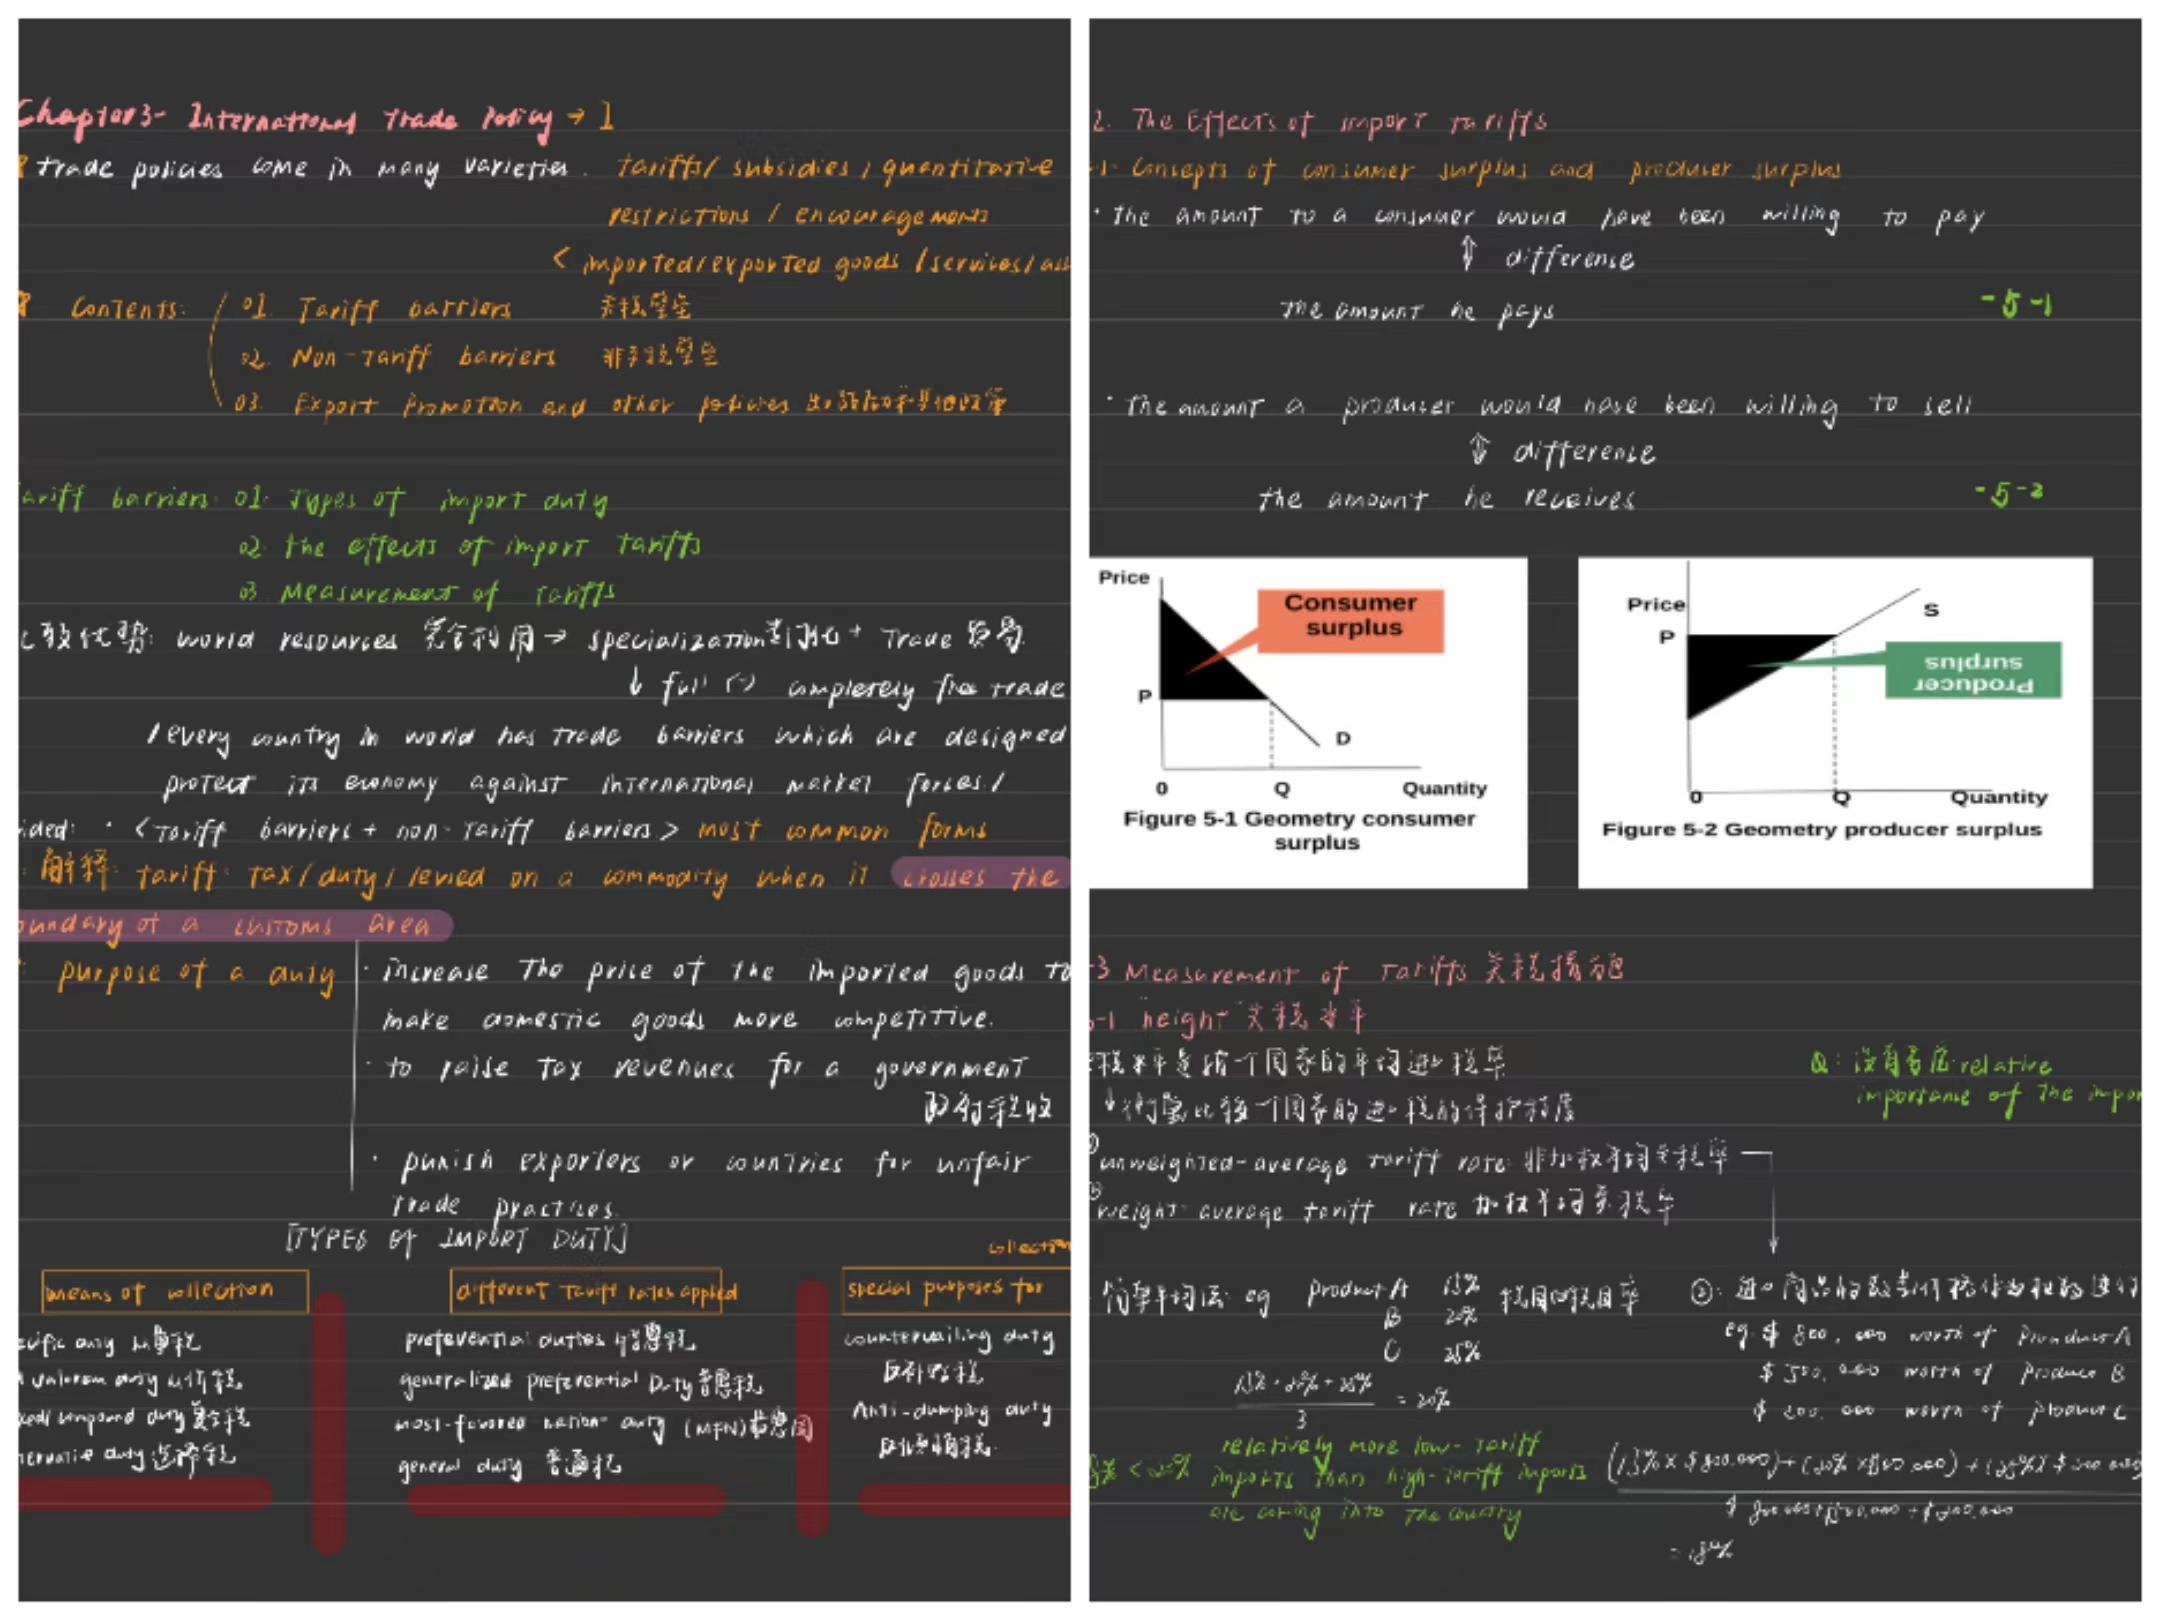 Chapter3- International Trade Policy → 1
trade policies come in many varieties. tariffs/ subsidies / quantitative
restrictions / encouragements
< imported/exported goods /services/ass
Contents: 01. Tariff barriers 关税壁垒
02. Non-Tariff barriers 非关税壁垒
03. Export Promotion and other policies
ariff barriers: 01. Types of import duty
02. the effects of import tariffs
03 Measurement of Tariffs
较优势: world resources 完全利用 → specialization专门化 + Trade 贸易
↓ full completely free trade
/every country in world has trade barriers which are designed
protect its economy against international market forces./
ided: · <Tariff barriers + non-Tariff barriers> most common forms
解释: tariff: tax/duty/ levied on a commodity when it crosses the
oundary of a customs area
purpose of a duty · increase the price of the imported goods to
make domestic goods more competitive.
· to raise tax revenues for a government
· punish exporters or countries for unfair
trade practices.
[TYPES OF IMPORT DUTY]
collection
means of collection different Tariff rates applied special purposes for
cific duty 从量税 preferential duties 特惠税 countervailing duty
反补贴税
valorem duty 从价税 generalized preferential Duty 普惠税
Anti-dumping duty
xed/ compound duty 复合税 most-favored nation- duty (MFN)最惠国
反倾销税.
ternative duty 选择税 general duty 普通税
2. The Effects of import tariffs
-1- Concepts of consumer surplus and producer surplus
· the amount to a consumer would have been willing to pay
⇕ difference
the amount he pays -5-1
· the amount a producer would have been willing to sell
⇕ difference
the amount he receives -5-2
Price
Consumer
surplus
P
D
0 Q Quantity
Figure 5-1 Geometry consumer
surplus
Price
S
P
Producer
surplus
0 Q Quantity
Figure 5-2 Geometry producer surplus
-3 Measurement of Tariffs 关税
-1 height 关税水平
税水平是指一个国家的平均进口税率
Q: 没有考虑 relative
importance of the impor
↓ 衡量比较一个国家的进口税的保护程度
① unweighted-average tariff rate: 非加权平均关税率
② weight-average tariff rate 加权平均关税率
简单平均法: eg product A 15%
B 20%
C 25%
15% + 20% + 25%
3
= 20%
②: 进口商品的
eg. $ 800,000 worth of Product A
$ 500,000 worth of Produce B
$ 200,000 worth of Produce C
(15% x $ 800.000) + (20% x $500.000) + (25% x $ 200.000)
$ 800.000 + $500,000 + $ 200.000
= 18%
8% < 20% relatively more low-tariff
imports than high-tariff imports
are coming into the country